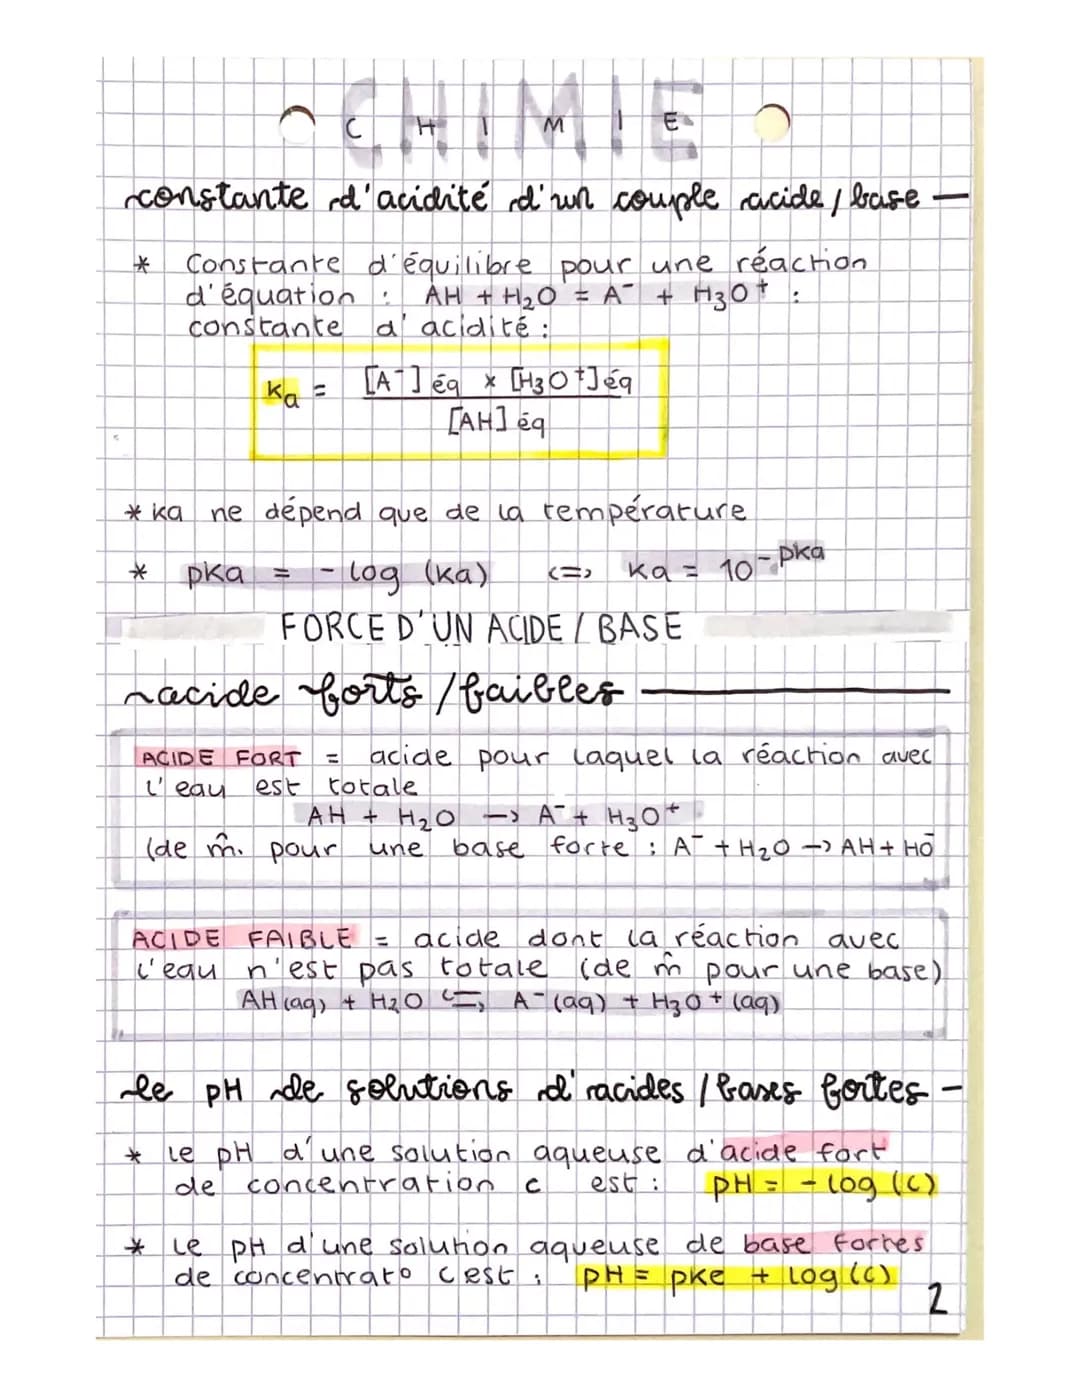 CHIMIE
constante d'acidité d'un couple acide / base —
* Constante d'équilibre pour une réaction
d'équation : AH + H₂O = A⁻ + H₃O⁺ :
constante d'acidité :
Ka = [A⁻]éq × [H₃O⁺]éq
[AH]éq
* Ka ne dépend que de la température
* pka = - log (ka) <=> Ka = 10^-pka
FORCE D'UN ACIDE / BASE
acide forts / faibles
ACIDE FORT = acide pour laquel la réaction avec
l'eau est totale
AH + H₂O → A⁻ + H₃O⁺
(de m̂. pour une base forte : A⁻ + H₂O → AH + HO⁻
ACIDE FAIBLE = acide dont la réaction avec
l'eau n'est pas totale (de m̂ pour une base)
AH (aq) + H₂O ⇌ A⁻ (aq) + H₃O⁺ (aq)
le pH de solutions d'acides / bases fortes -
* Le pH d'une solution aqueuse d'acide fort
de concentration c est : pH = - log (c)
* Le pH d'une solution aqueuse de base fortes
de concentrat° c est : pH = pke + log (c)
2